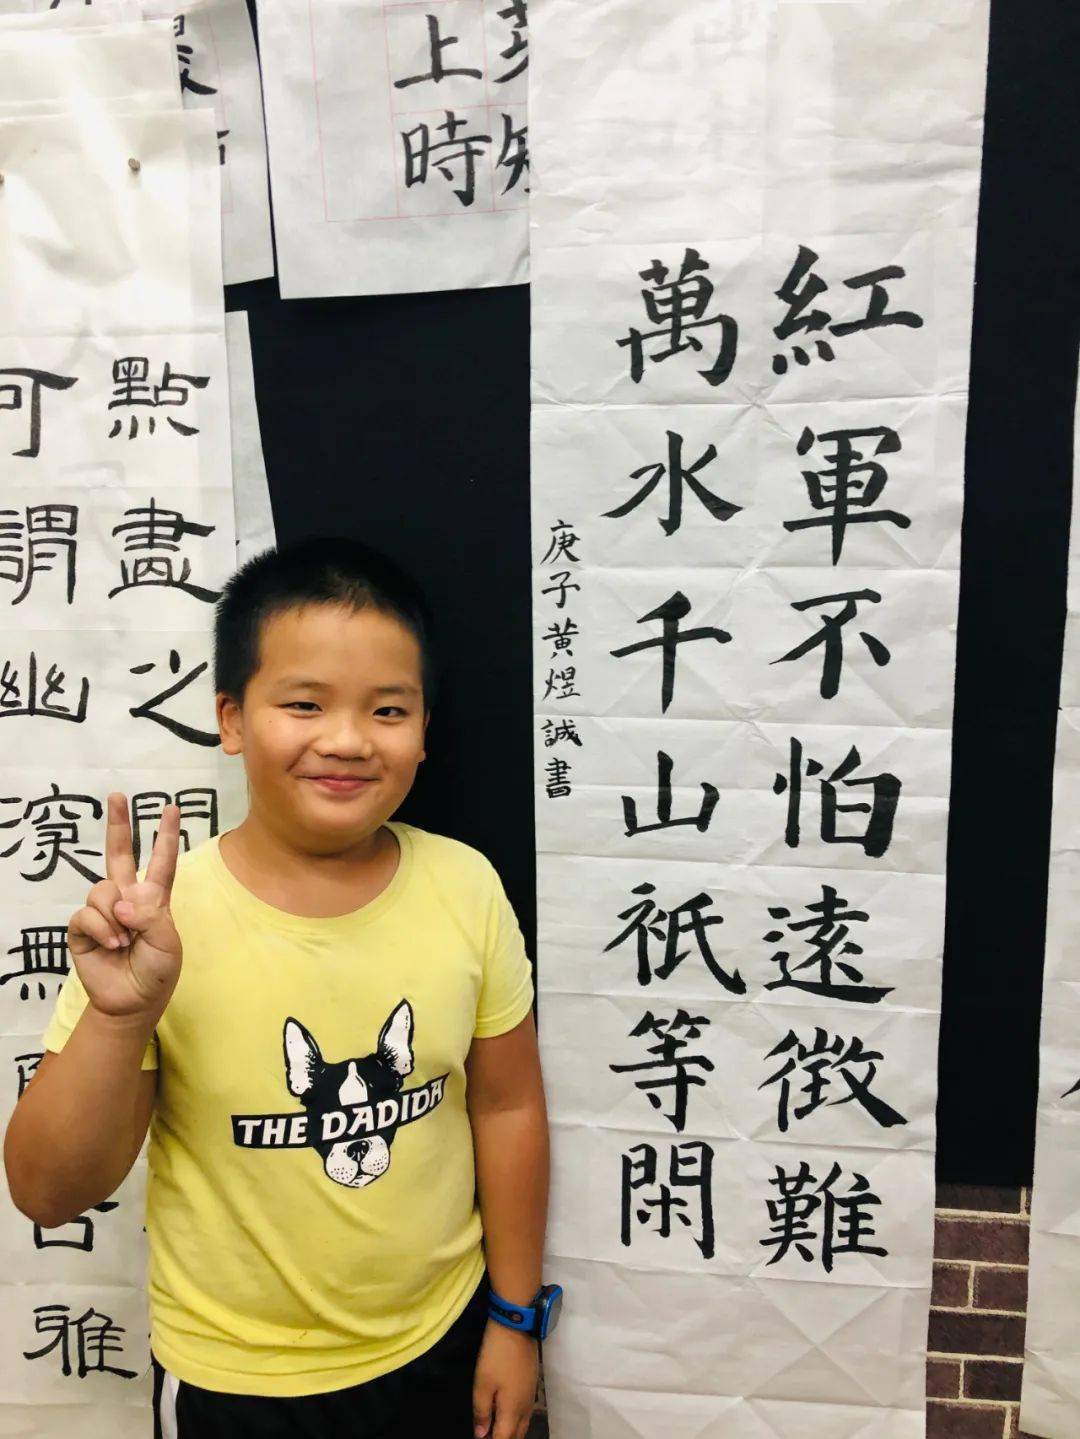 紅軍不怕遠徵難
萬水千山祇等閑
庚子黃煜誠書
上時
點畫之間
可謂幽深無
雅
THE DADIDA